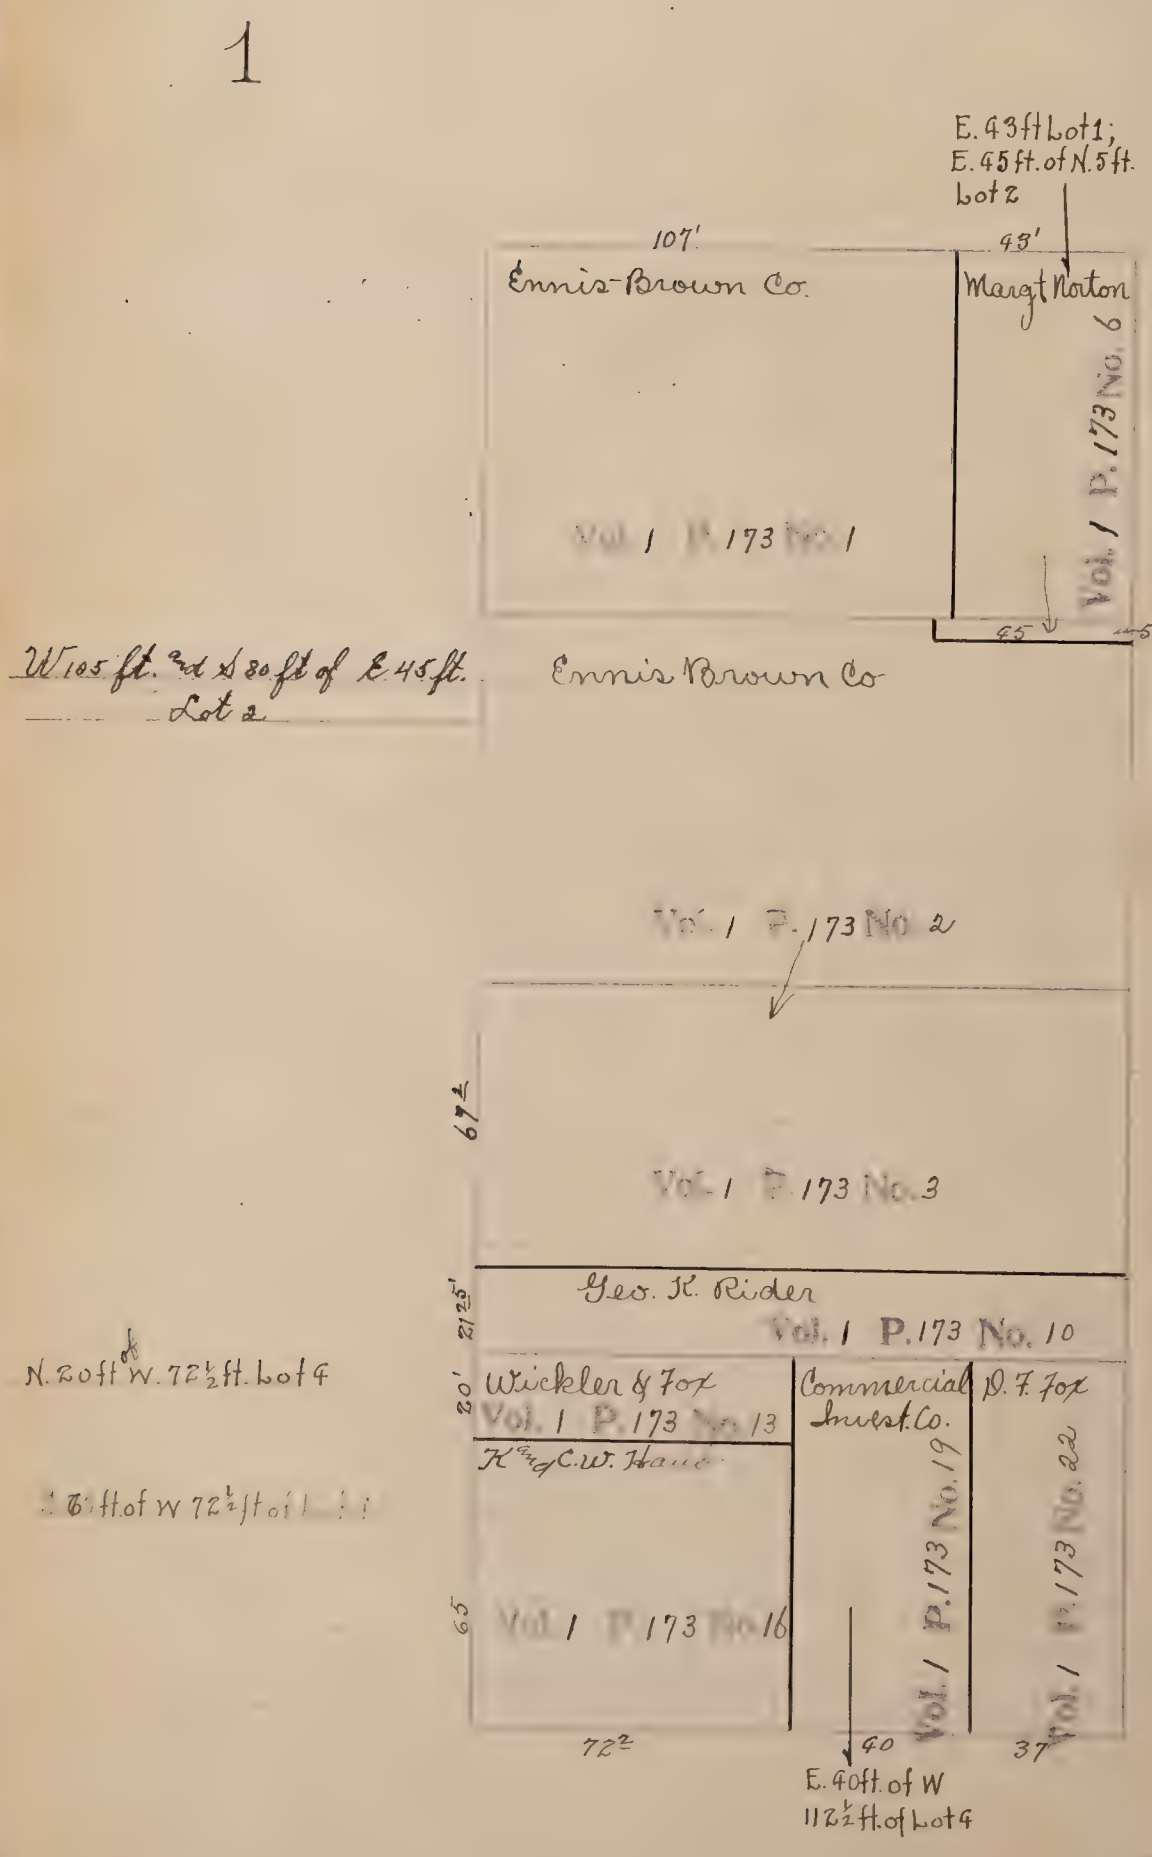 1
E. 43 ft Lot 1;
E. 45 ft. of N. 5 ft.
Lot 2
107'
43'
Ennis-Brown Co.
Margt Norton
Vol. 1 P. 173 No. 6
Vol. 1 P. 173 No. 1
45
5
W 105 ft. and S 80 ft of E 45 ft.
Lot 2
Ennis Brown Co
Vol. 1 P. 173 No. 2
Vol. 1 P. 173 No. 3
Geo. K. Rider
21 25'
Vol. 1 P. 173 No. 10
N. 20 ft of W. 72 1/2 ft. Lot 4
20'
Wickler & Fox
Vol. 1 P. 173 No. 13
Commercial
Invest. Co.
D. F. Fox
K and C. W.
ft. of W 72 1/2 ft of
65
Vol. 1 P. 173 No. 16
Vol. 1 P. 173 No. 19
Vol. 1 P. 173 No. 22
72 2
40
37
E. 40 ft. of W
112 1/2 ft. of Lot 4